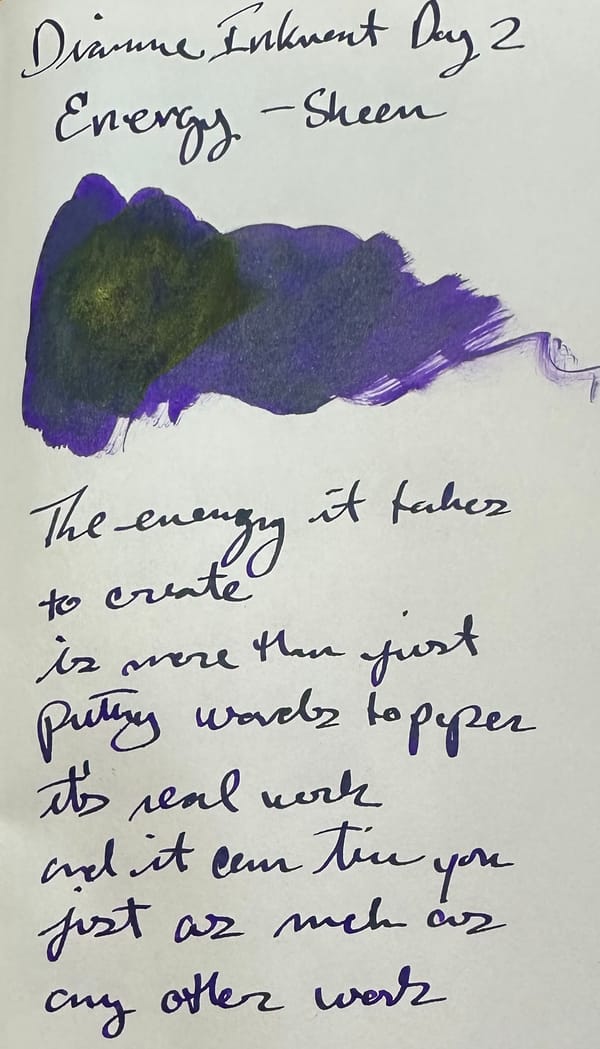 Diamine Inkvent Day 2
Energy - Sheen
The energy it takes
to create
is more than just
putting words to paper
it's real work
and it can tire you
just as much as
any other work